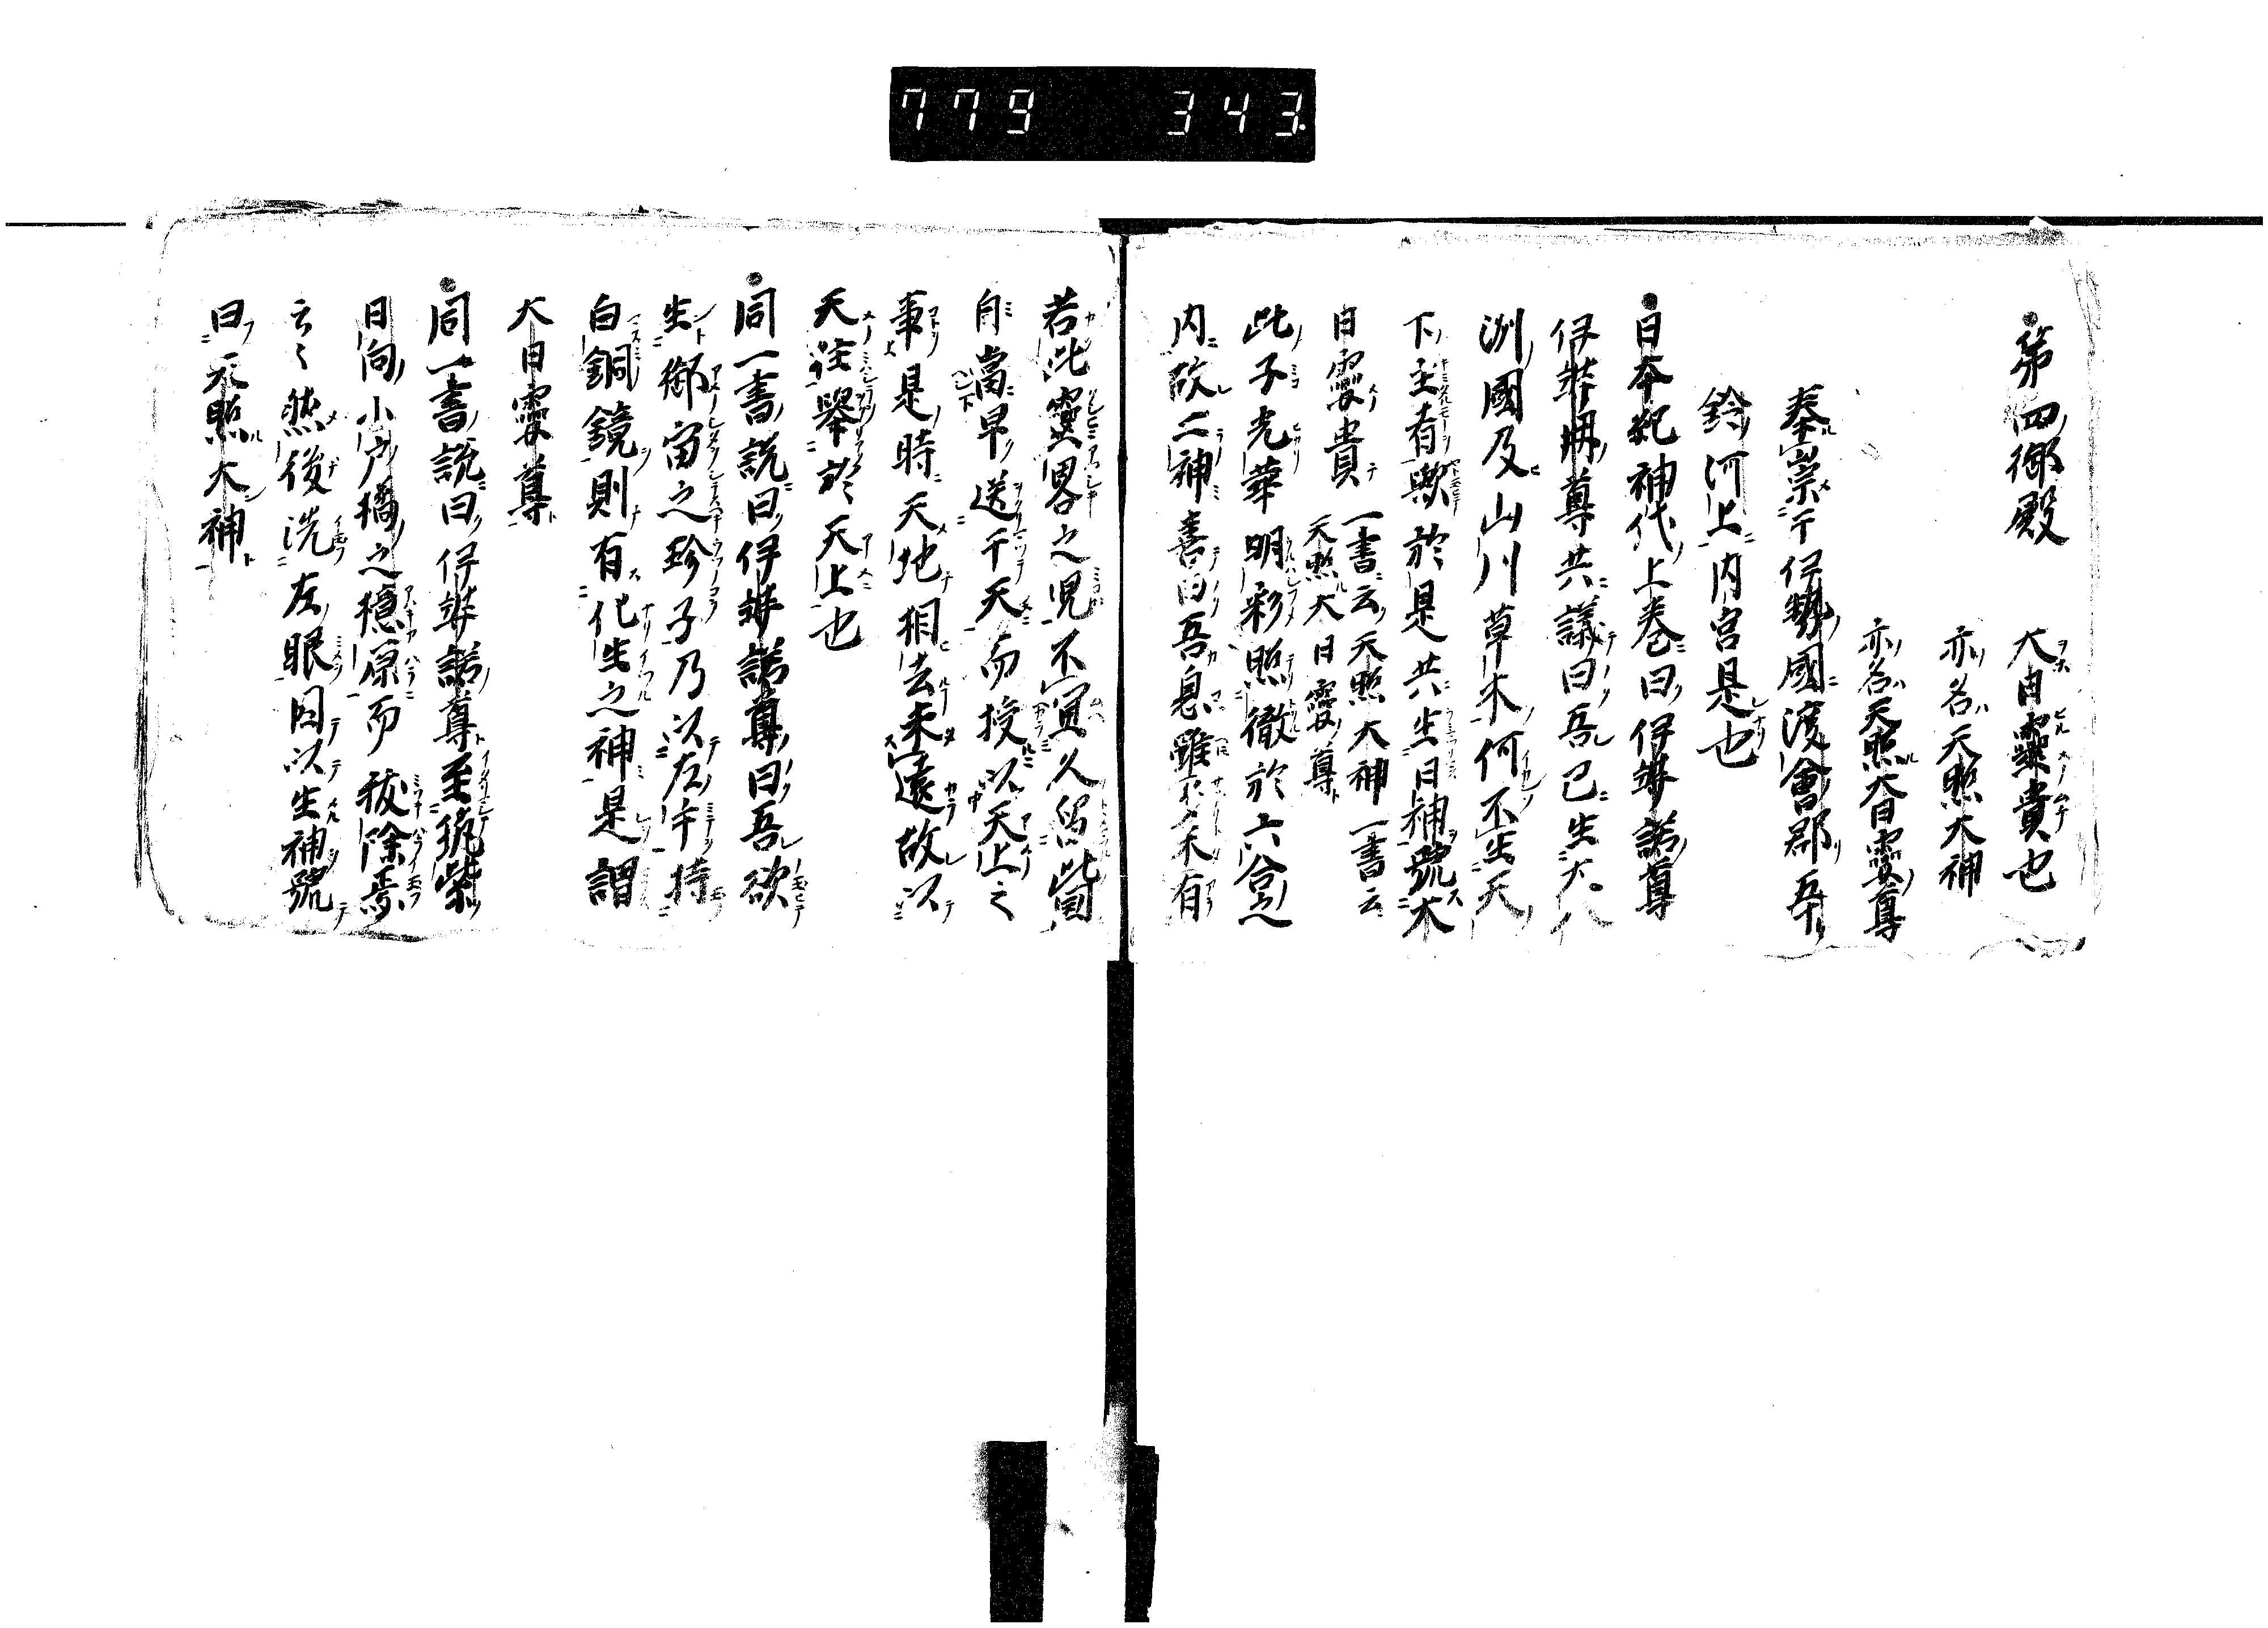 779 343
第四御殿 大日孁貴也
亦名天照大神
亦名天照大日孁尊
奉崇于伊勢國渡會郡五十
鈴河上内宮是也
日本紀神代上卷曰伊弉諾尊
伊弉冊尊共議曰吾已生大八
洲國及山川草木何不生天
下主者歟於是共生日神號大
日孁貴 一書云天照大神 一書云
天照大日孁尊
此子光華明彩照徹於六合之
内故二神喜曰吾息雖多未有
若此靈畧之兒不宜久留此國
自當早送于天而授以天上之
事是時天地相去未遠故以
天柱舉於天上也
同一書説曰伊弉諾尊曰吾欲
生御宙之珍子乃以左手持
白銅鏡則有化生之神是謂
大日孁尊
同一書説曰伊弉諾尊至筑紫
日向小戸橘之檍原而祓除焉
云々然後洗左眼因以生神號
曰天照大神